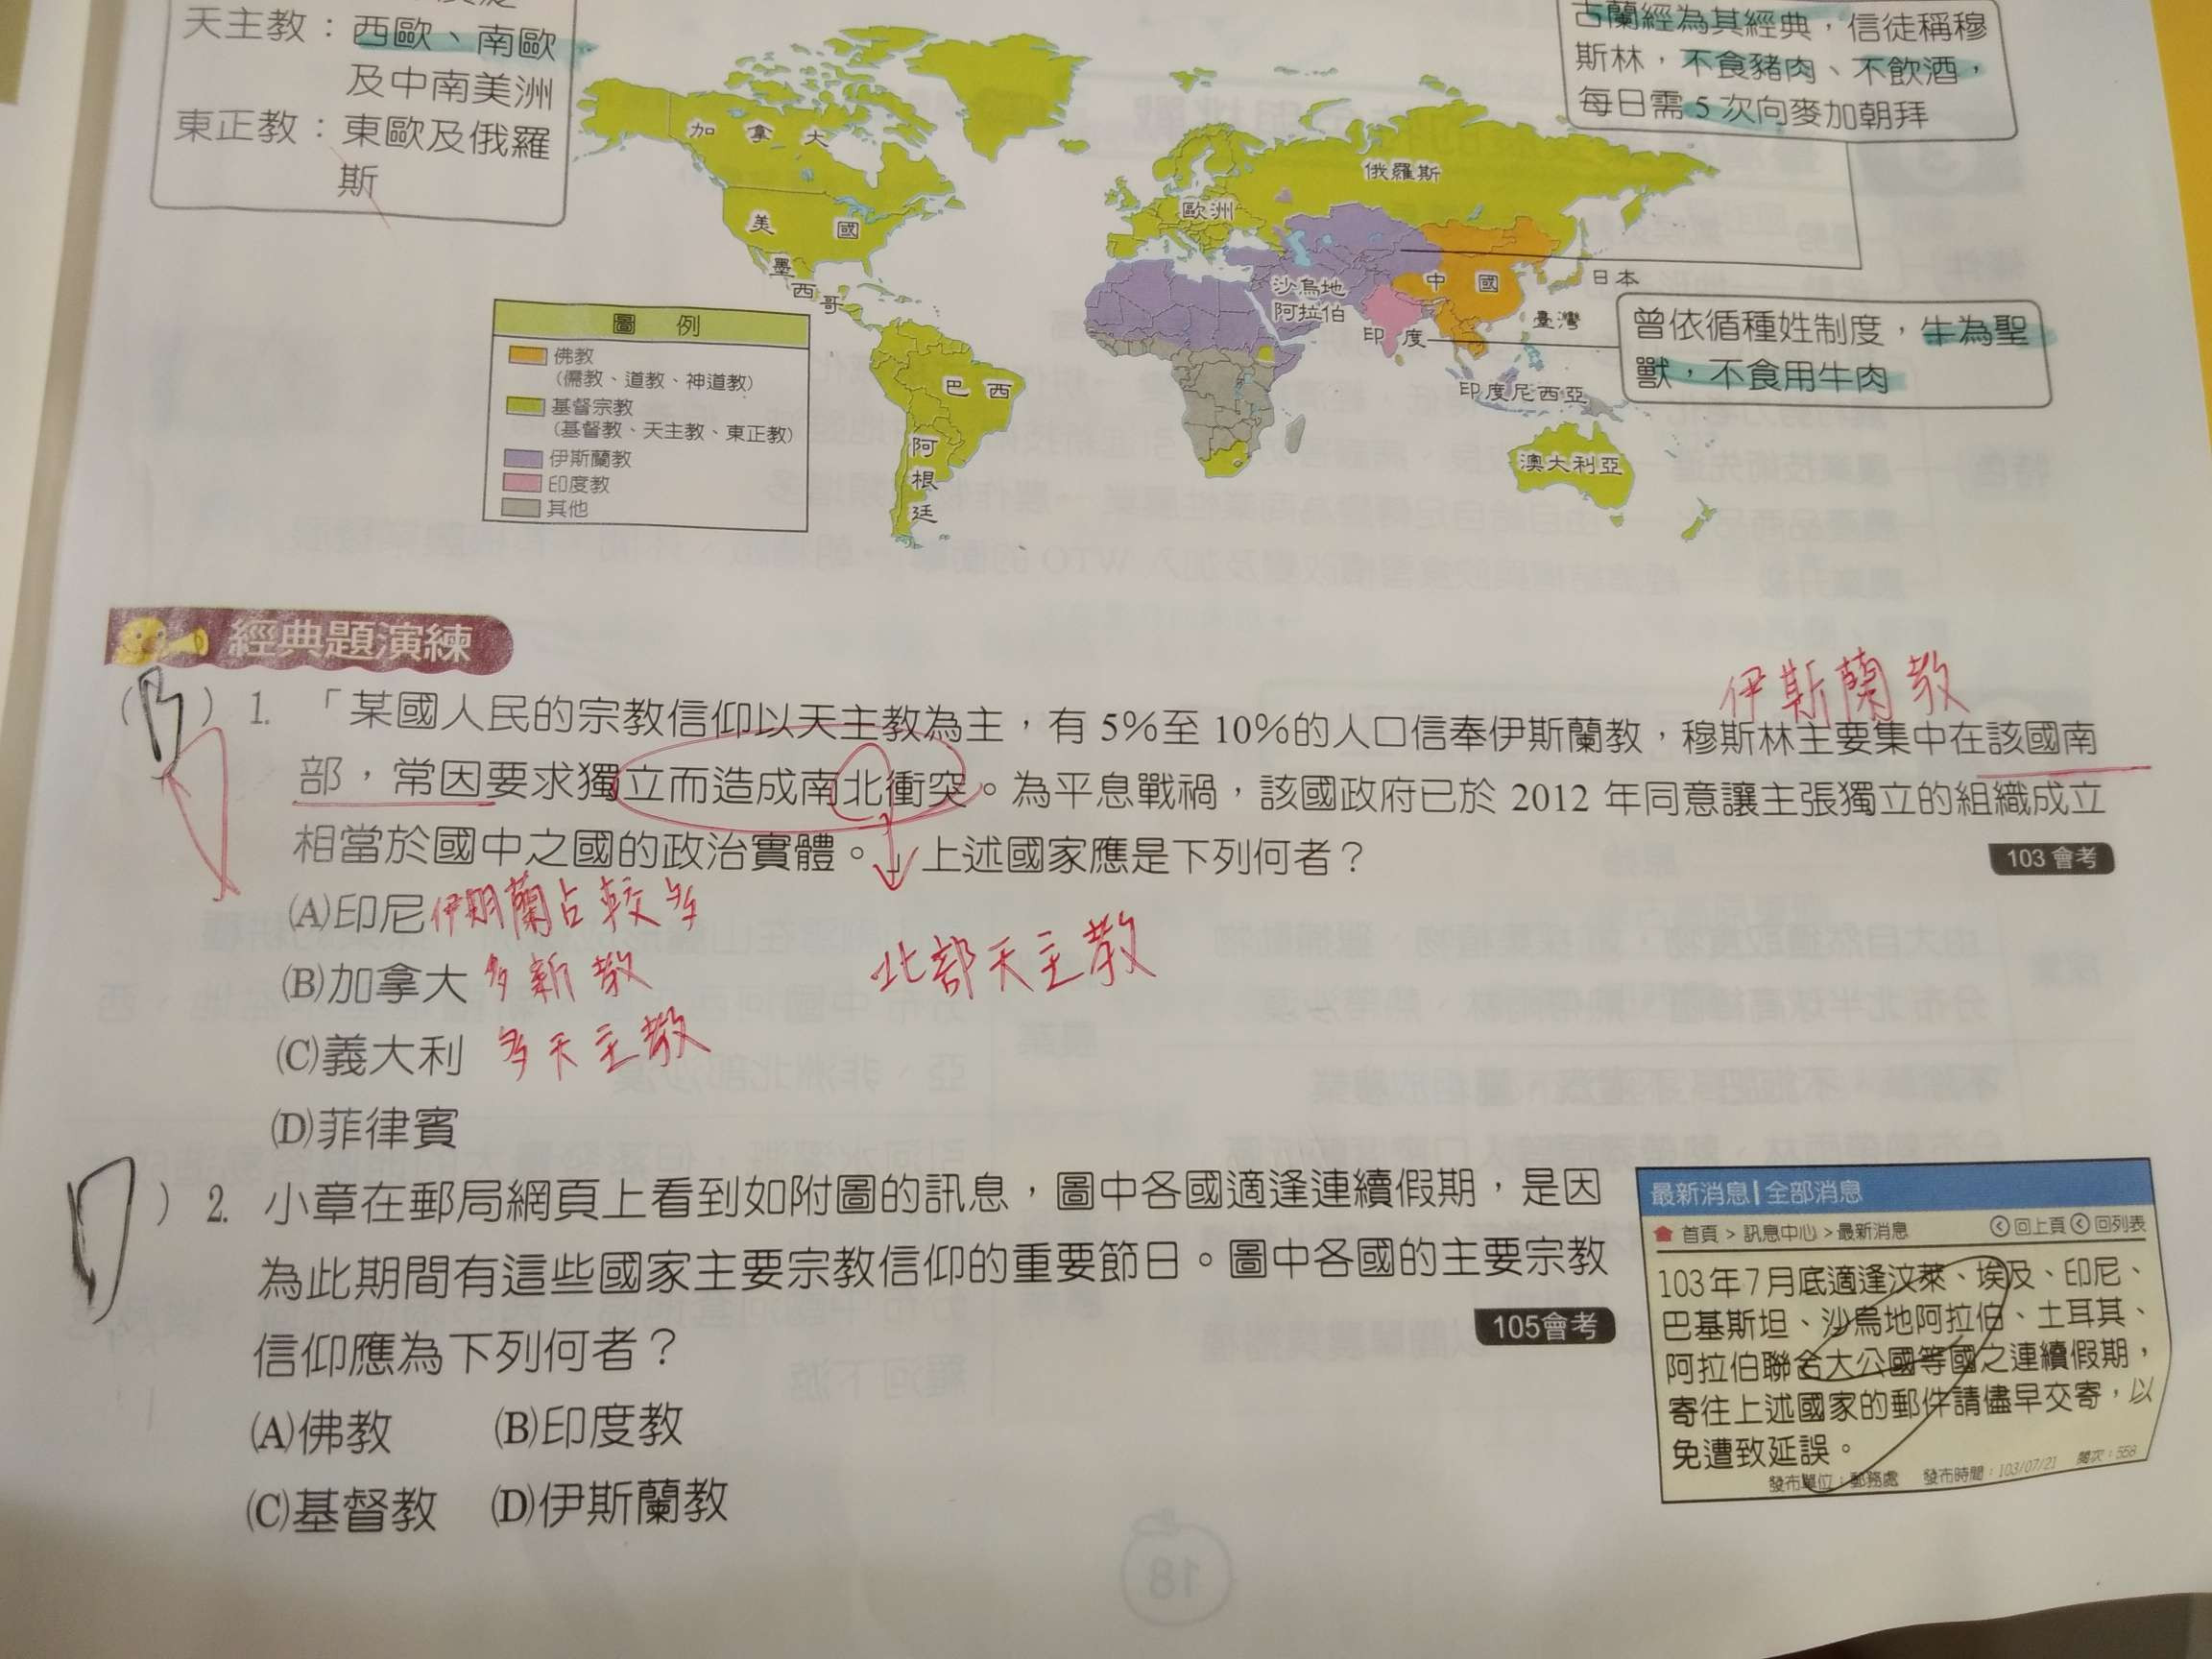 天主教：西歐、南歐
及中南美洲
東正教：東歐及俄羅
斯
古蘭經為其經典，信徒稱穆
斯林，不食豬肉、不飲酒，
每日需 5 次向麥加朝拜
加拿大
美國
墨西哥
巴西
阿根廷
歐洲
俄羅斯
沙烏地
阿拉伯
印度
中國
日本
臺灣
印度尼西亞
澳大利亞
曾依循種姓制度，牛為聖
獸，不食用牛肉
圖例
佛教
(儒教、道教、神道教)
基督宗教
(基督教、天主教、東正教)
伊斯蘭教
印度教
其他
經典題演練
伊斯蘭教
(B) 1. 「某國人民的宗教信仰以天主教為主，有 5%至 10%的人口信奉伊斯蘭教，穆斯林主要集中在該國南
部，常因要求獨立而造成南北衝突。為平息戰禍，該國政府已於 2012 年同意讓主張獨立的組織成立
相當於國中之國的政治實體。」上述國家應是下列何者？ 103 會考
(A)印尼 伊斯蘭占較多
北部天主教
(B)加拿大 多新教
(C)義大利 多天主教
(D)菲律賓
(D) 2. 小章在郵局網頁上看到如附圖的訊息，圖中各國適逢連續假期，是因
為此期間有這些國家主要宗教信仰的重要節日。圖中各國的主要宗教
信仰應為下列何者？ 105會考
(A)佛教 (B)印度教
(C)基督教 (D)伊斯蘭教
最新消息|全部消息
首頁 > 訊息中心 > 最新消息 回上頁 回列表
103年7月底適逢汶萊、埃及、印尼、
巴基斯坦、沙烏地阿拉伯、土耳其、
阿拉伯聯合大公國等國之連續假期，
寄往上述國家的郵件請儘早交寄，以
免遭致延誤。
發布單位：郵務處 發布時間：103/07/21 閱次：558
18